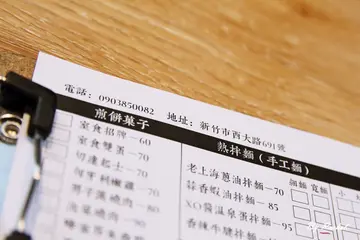 電話：0903850082 地址：新竹市西大路691號
煎餅菓子
室食招牌-60
室食雙蛋-70
切達起士-70
男子漢燒肉-
熱拌麵（手工麵）
細麵 寬麵
老上海蔥油拌麵-70
蒜香蝦油拌麵-85
XO醬溫泉蛋拌麵-95
香辣牛腱拌麵